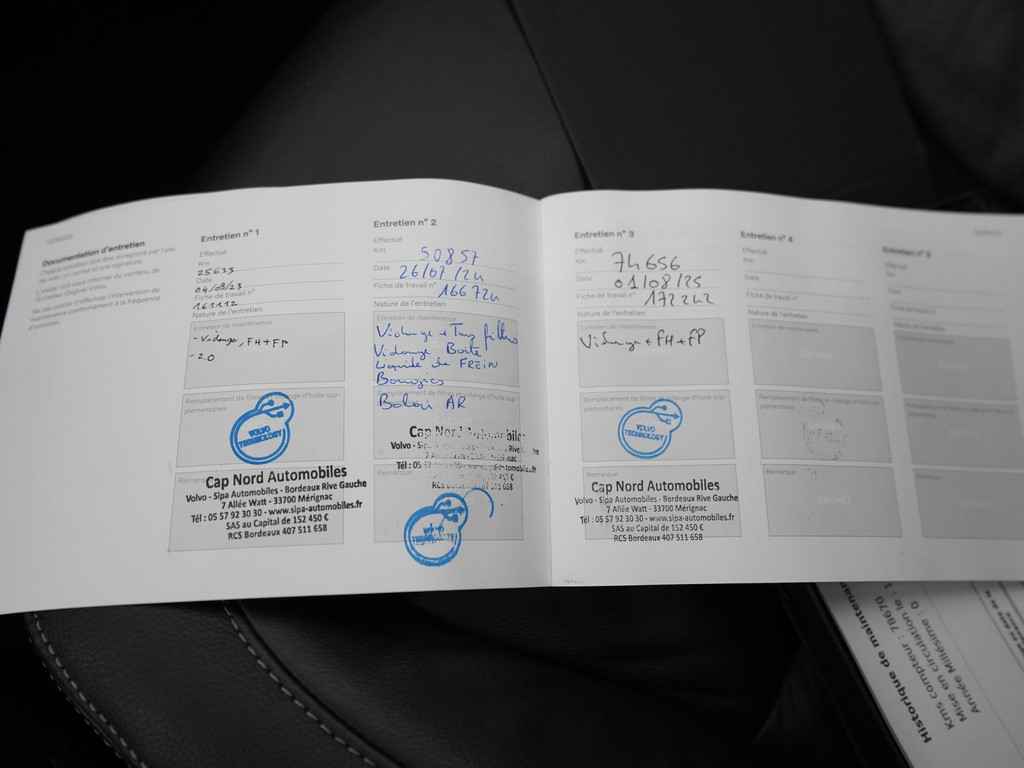 Documentation d'entretien
Entretien n° 1
Effectué
Km
25633
Date
04/08/23
Fiche de travail n°
163112
Nature de l'entretien:
Entretien de maintenance
- Vidange, FH+FP
- 2.0
VOLVO
TECHNOLOGY
Cap Nord Automobiles
Volvo - Sipa Automobiles - Bordeaux Rive Gauche
7 Allée Watt - 33700 Mérignac
Tél : 05 57 92 30 30 - www.sipa-automobiles.fr
SAS au Capital de 152 450 €
RCS Bordeaux 407 511 658
Entretien n° 2
Effectué
Km
50857
Date
26/07/24
Fiche de travail n°
166724
Nature de l'entretien:
Entretien de maintenance
Vidange + filtres
Vidange Boite
Liquide de FREIN
Balai AR
Cap Nord Automobiles
Volvo - Rive
Tél : 05 57
658
VOLVO
Entretien n° 3
Effectué
Km
74656
Date
01/08/25
Fiche de travail n°
172242
Nature de l'entretien:
Entretien de maintenance
Vidange + FH + FP
VOLVO
TECHNOLOGY
Remarque
Cap Nord Automobiles
Volvo - Sipa Automobiles - Bordeaux Rive Gauche
7 Allée Watt - 33700 Mérignac
Tél : 05 57 92 30 30 - www.sipa-automobiles.fr
SAS au Capital de 152 450 €
RCS Bordeaux 407 511 658
Entretien n° 4
Effectué
Km
Date
Fiche de travail n°
Nature de l'entretien:
Entretien de maintenance
Remarque
Entretien n° 5
Historique de maintenan
Kms compteur : 78670
Mise en circulation le :
Année Millésime : 0